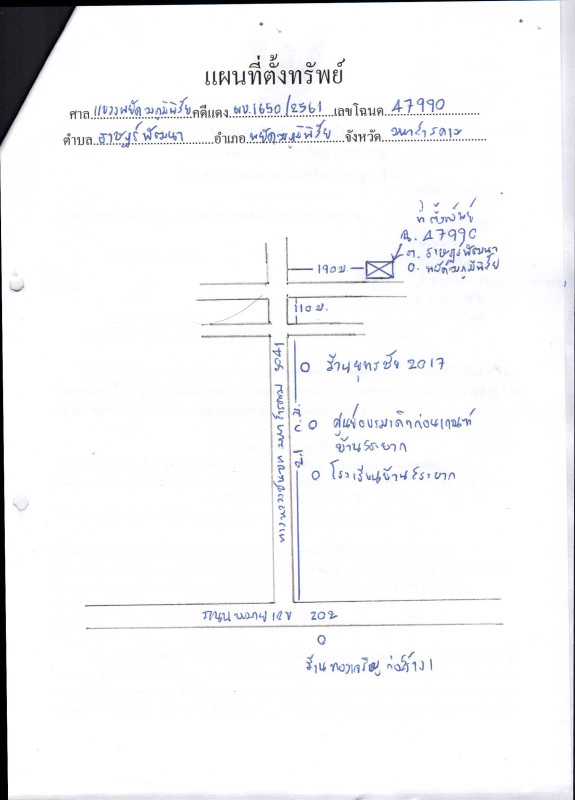 แผนที่ตั้งทรัพย์
ศาล แขวงพยัคฆภูมิพิสัย คดีแดง ผบ.1650/2561 เลขโฉนด 47990
ตำบล ราษฎร์พัฒนา อำเภอ พยัคฆภูมิพิสัย จังหวัด มหาสารคาม
ที่ตั้งทรัพย์
ฉ. 47990
ต. ราษฎร์พัฒนา
อ. พยัคฆภูมิพิสัย
190 ม.
110 ม.
ร้านยุทธชัย 2017
ศูนย์อบรมเด็กก่อนเกณฑ์
บ้านสระยาก
โรงเรียนบ้านสระยาก
ทางหลวงชนบท มหาสารคาม
ถนนหมายเลข 202
ร้านทองเจริญ ก่อสร้าง 1